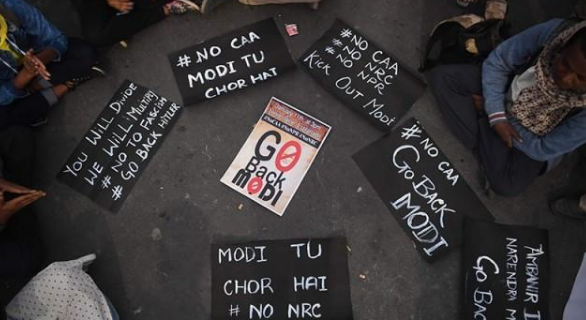 #NO CAA
MODI TU
CHOR HAI
#NO CAA
#NO NRC
#NO NPR
Kick Out Modi
You Will Divide
WE WILL Multiply
# NO TO FASCISM
# GO BACK HITLER
GO
Back
MODI
#NO CAA
Go Back
MODI
MODI TU
CHOR HAI
# NO NRC
NARENDRA M
Go Back